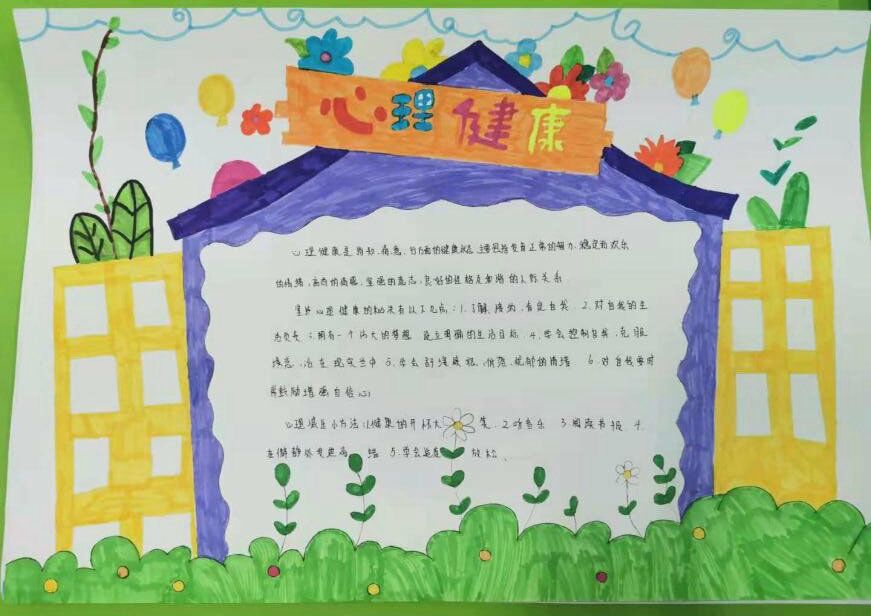 心理健康
心理健康是为知、情感、行为面的健康状态主要包括发育正常的智力、稳定而欢乐
的情绪,高尚的情感,坚强的意志,良好的性格及和谐的人际关系.
心理健康的秘决有以下几点:1.了解、接纳、肯定自我.2.对自我的生
活负责 3.拥有一个伟大的梦想 建立明确的生活目标.4.学会控制自我,克服
.活在现实当中 5.学会舒缓 的情绪 6.对自我要时
常鼓励增强自信心
心理减压小方法:1.健康的开怀大笑.2.听音乐 3.阅读书报.4.
在僻静处 5.学会 放松、